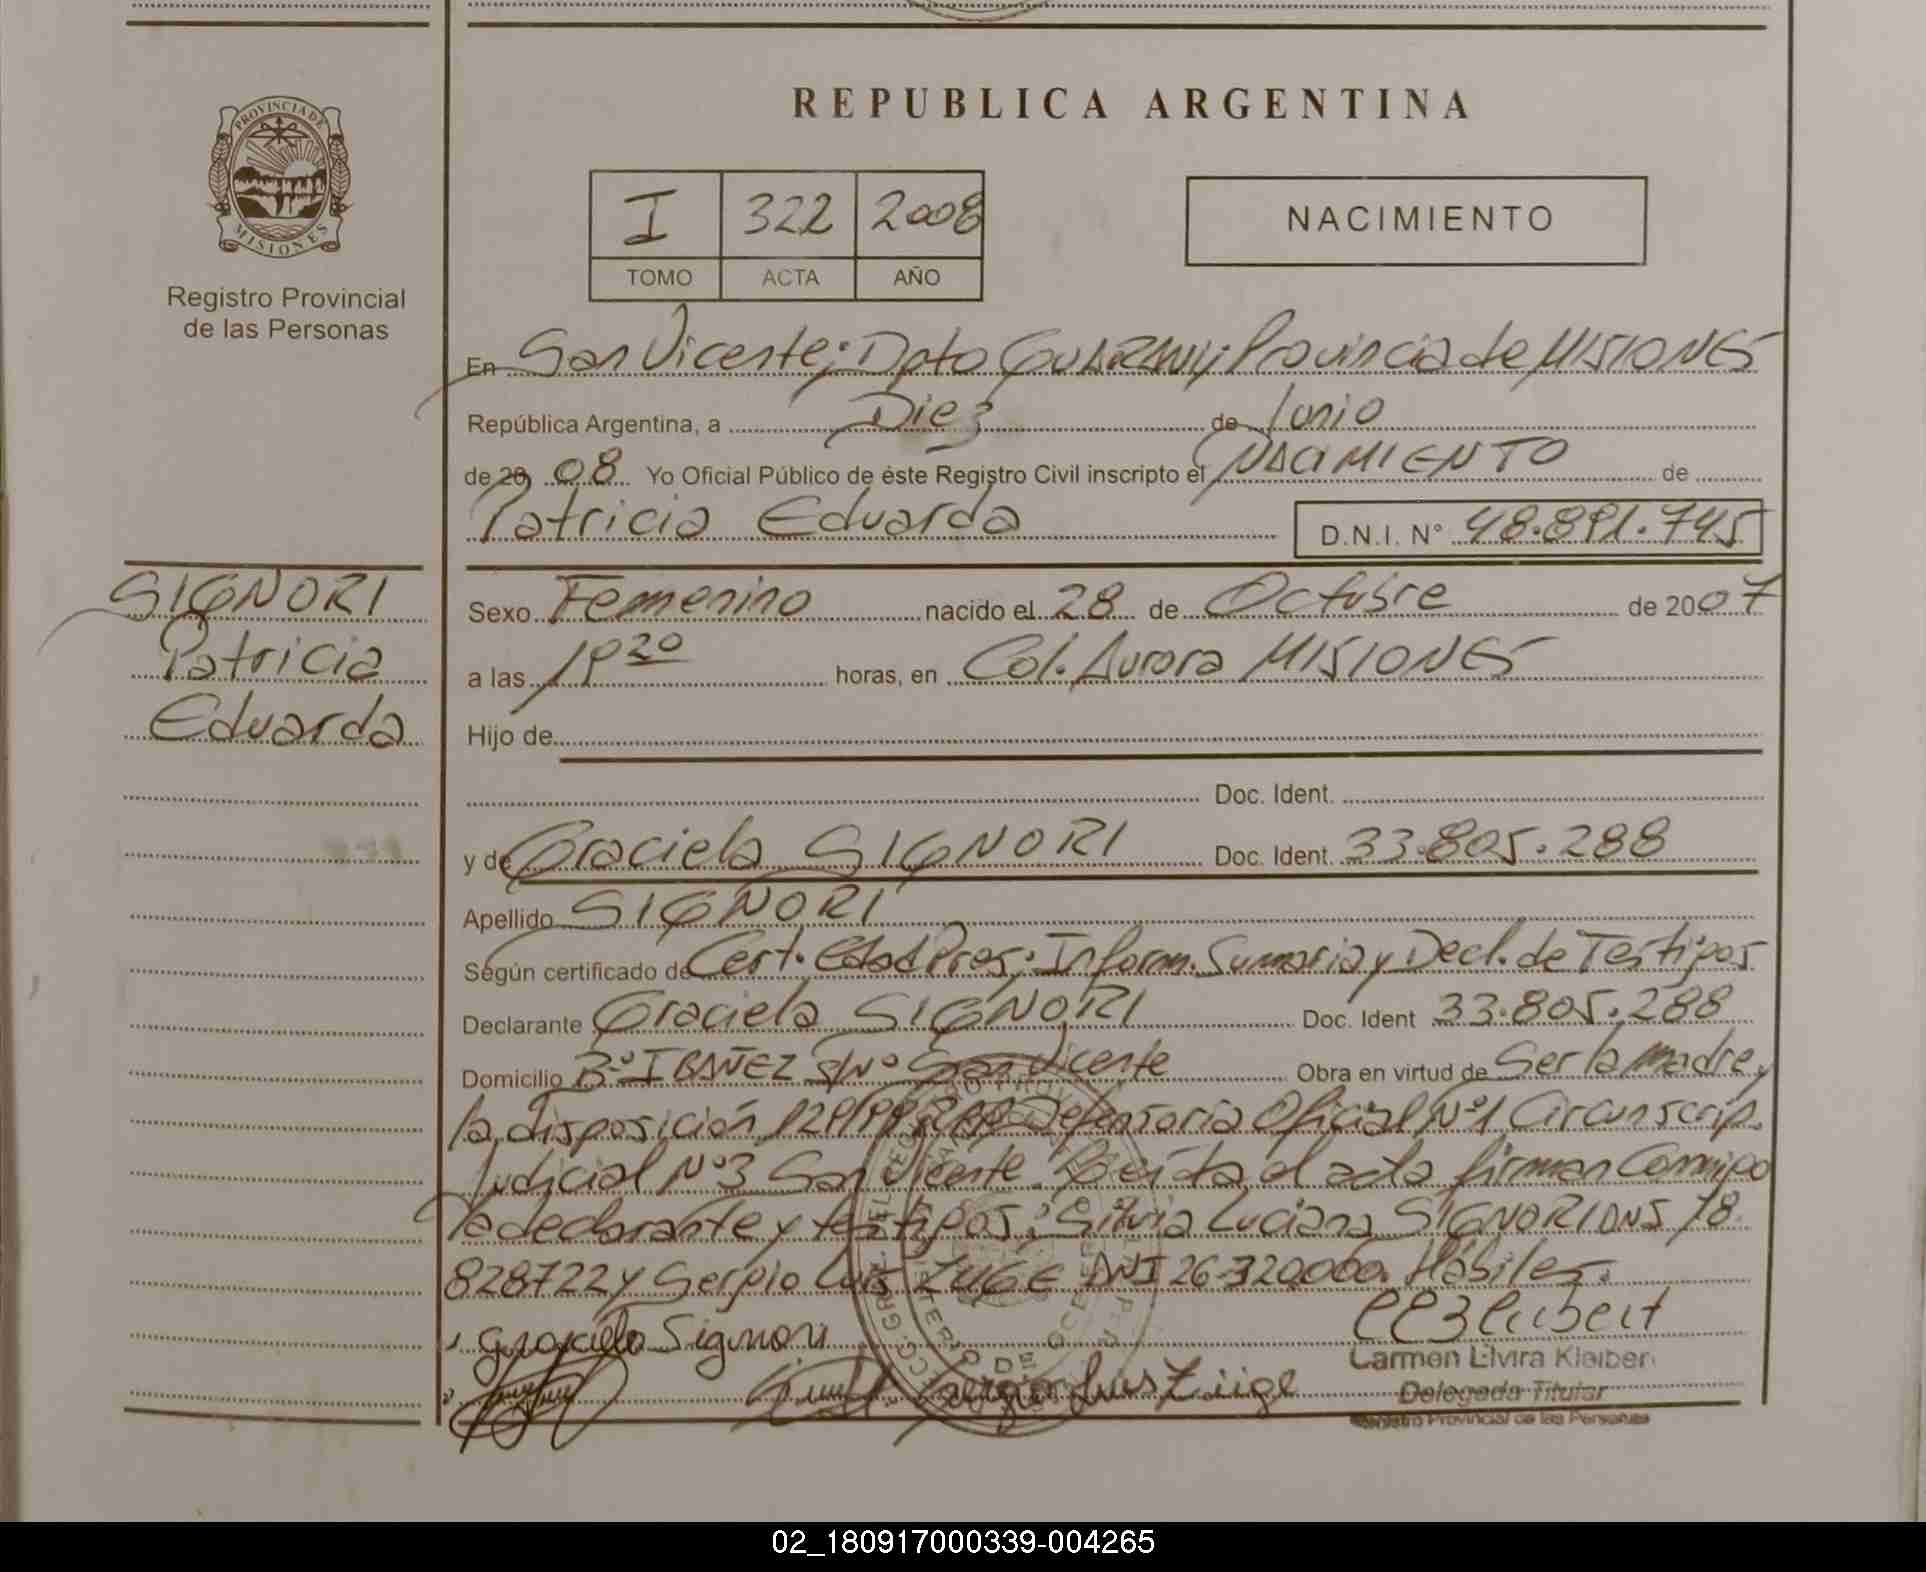 REPUBLICA ARGENTINA
PROVINCIA DE
MISIONES
Registro Provincial
de las Personas
I 322 2008
TOMO ACTA AÑO
NACIMIENTO
En San Vicente; Dpto GUARANI; Provincia de MISIONES
República Argentina, a Diez de Junio
de 20 08 Yo Oficial Público de éste Registro Civil inscripto el NACIMIENTO de
Patricia Eduarda D.N.I. N° 48.891.745
SIGNORI
Patricia
Eduarda
Sexo Femenino nacido el 28 de Octubre de 2007
a las 19 20 horas, en Col. Aurora MISIONES
Hijo de
Doc. Ident.
y de Graciela SIGNORI Doc. Ident. 33.805.288
Apellido SIGNORI
Según certificado de Cert. Edad Pres; Inform. Sumaria y Decl. de Testigos
Declarante Graciela SIGNORI Doc. Ident 33.805.288
Domicilio B° IBAÑEZ S/N° San Vicente Obra en virtud de Ser la madre y
la disposición Defensoria Oficial N°1 Circunscrip.
Judicial N°3 San Vicente. Leida el acta firman Conmigo
la declarante y testigos: Silvia Luciana SIGNORI DNI 18.
828722 y Sergio Luis ZUGE DNI 26.320.000. Hábiles.
Graciela Signori
Sergio Luis Züge
Carmen Elvira Kleiber
Delegada Titular
Registro Provincial de las Personas
02_180917000339-004265